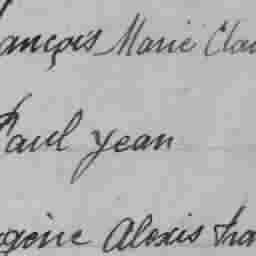 ançois Marie Clau
Paul Jean
ugène Alexis Fra